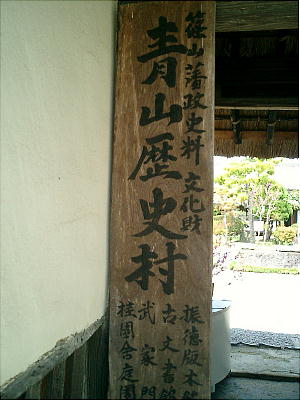 篠山藩政史料 文化財
青山歴史村
振徳版本
古文書館
武家門
桂園舎庭園